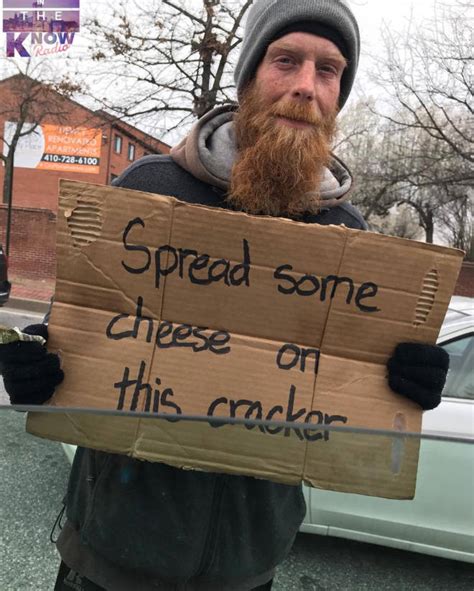 IN
THE
KNOW
Radio
NEWLY
RENOVATED
APARTMENTS
410-728-6100
Spread some
cheese on
this cracker